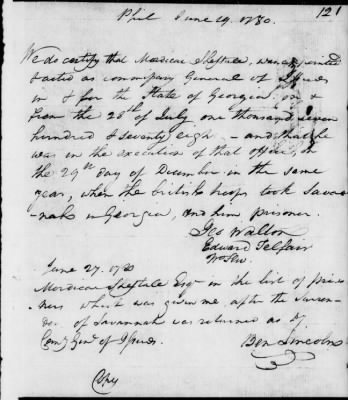 121
Phil June 29. 1780.
We do certify that Mordicai Sheftall, was appointed
& acted as commissary General of Issues
in & for the State of Georgia, on &
from the 28th of July one thousand seven
hundred & seventy eight - and that he
was in the execution of that office, on
the 29th day of December in the same
year, when the british troops took Savan
-nah in Georgia, and him prisoner.
Geo Walton
Edward Telfair
June 27. 1780
Mordicai Sheftall Esqr in the list of priso
ners which was given me after the Surren
der of Savannah was returned as dy.
Comy Genl of Issues.
Ben Lincoln
Copy